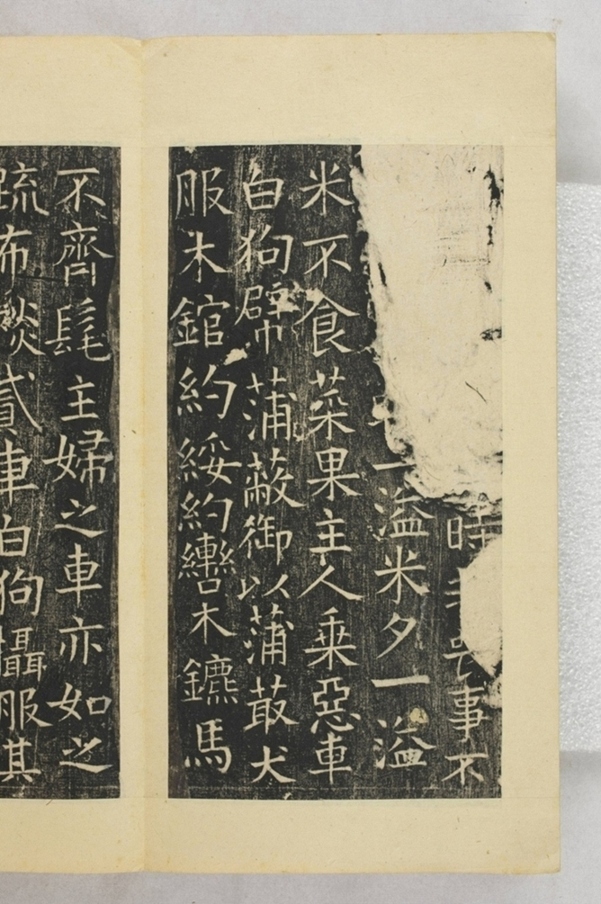 時非喪事不
一溢米夕一溢
米不食菜果主人乗惡車
白狗幦蒲蔽御以蒲菆犬
服木錧約綏約轡木鑣馬
不齊髦主婦之車亦如之
疏布裧貳車白狗攝服其